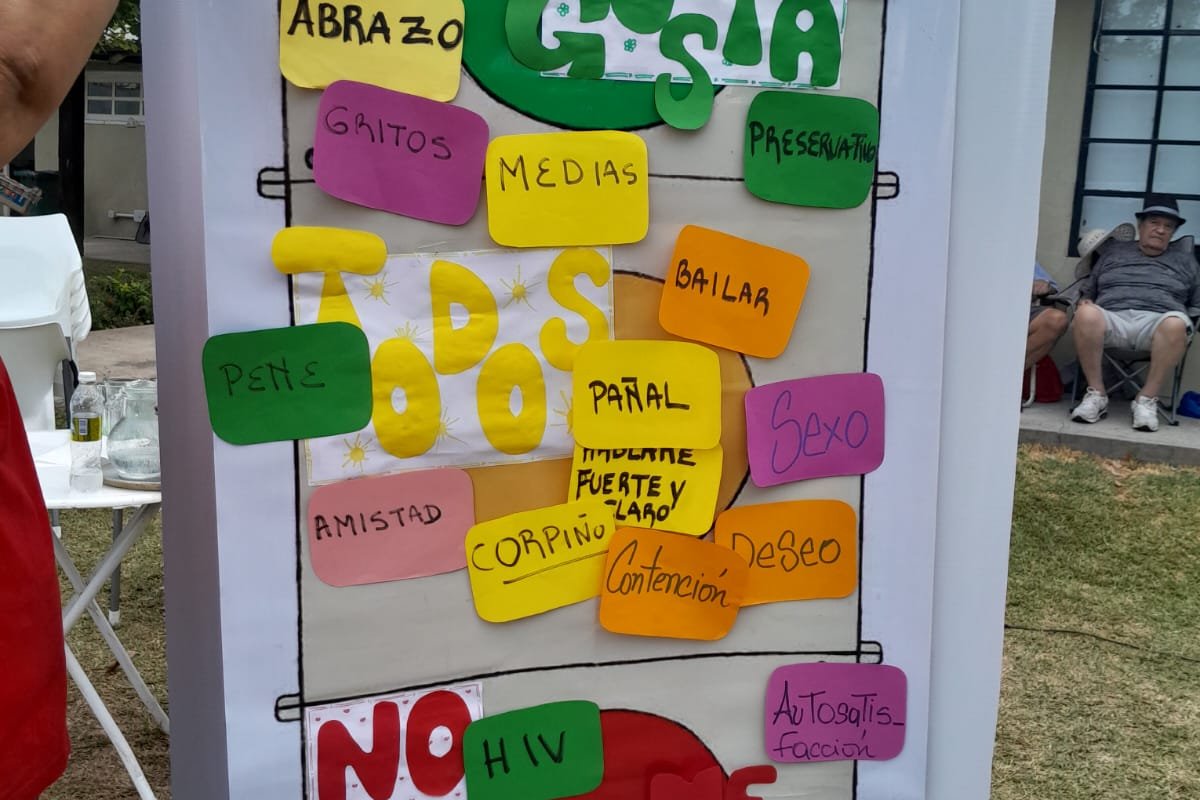 ABRAZO
GUSTA
GRITOS
MEDIAS
PRESERVATIVO
TODOS
BAILAR
PENE
PAÑAL
SEXO
HABLARME
FUERTE Y
CLARO
AMISTAD
CORPIÑO
Contención
DESEO
NO
HIV
AUTOSATIS_
facción
ME